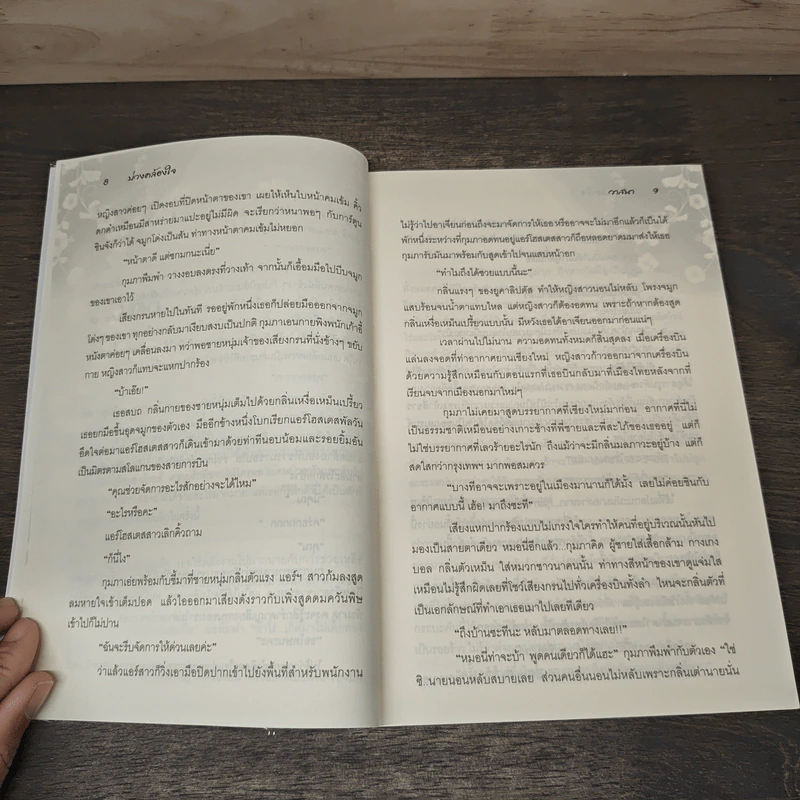 8 บ่วงคล้องใจ
หญิงสาวค่อยๆ เปิดงอบที่ปิดหน้าตาของเขา เผยให้เห็นใบหน้าคมเข้ม คิ้ว
ดกดำเหมือนมีสาหร่ายมาแปะอยู่ไม่มีผิด จะเรียกว่าหนาพอๆ กับการ์ตูน
ชินจังก็ว่าได้ จมูกโด่งเป็นสัน ท่าทางหน้าตาคมเข้มไม่หยอก
“หน้าตาดี แต่ซกมกนะเนี่ย”
กุมภาพึมพำ วางงอบลงตรงที่วางเท้า จากนั้นก็เอื้อมมือไปบีบจมูก
ของเขาเอาไว้
เสียงกรนหายไปในทันที รออยู่พักหนึ่งเธอก็ปล่อยมือออกจากจมูก
โด่งๆ ของเขา ทุกอย่างกลับมาเงียบสงบเป็นปกติ กุมภาเอนกายพิงพนักเก้าอี้
หนังตาค่อยๆ เคลื่อนลงมา ทว่าพอชายหนุ่มเจ้าของเสียงกรนที่นั่งข้างๆ ขยับ
กาย หญิงสาวก็แทบจะแหกปากร้อง
“บ้าเอ๊ย!”
เธอสบถ กลิ่นกายของชายหนุ่มเต็มไปด้วยกลิ่นเหงื่อเหม็นเปรี้ยว
เธอยกมือขึ้นอุดจมูกของตัวเอง มืออีกข้างหนึ่งโบกเรียกแอร์โฮสเตสพัลวัน
อึดใจต่อมาแอร์โฮสเตสสาวก็เดินเข้ามาด้วยท่าทีนอบน้อมและรอยยิ้มอัน
เป็นมิตรตามสโลแกนของสายการบิน
“คุณช่วยจัดการอะไรสักอย่างจะได้ไหม”
“อะไรหรือคะ”
แอร์โฮสเตสสาวเลิกคิ้วถาม
“ก็นี่ไง”
กุมภาเอ่ยพร้อมกับชี้มาที่ชายหนุ่มกลิ่นตัวแรง แอร์ฯ สาวก้มลงสูด
ลมหายใจเข้าเต็มปอด แล้วไอออกมาเสียงดังราวกับเพิ่งสูดดมควันพิษ
เข้าไปก็ไม่ปาน
“ฉันจะรีบจัดการให้ด่วนเลยค่ะ”
ว่าแล้วแอร์สาวก็วิ่งเอามือปิดปากเข้าไปยังพื้นที่สำหรับพนักงาน
วาสนา 9
ไม่รู้ว่าไปอาเจียนก่อนถึงจะมาจัดการให้เธอ หรืออาจจะไม่มาอีกแล้วก็เป็นได้
พักหนึ่งระหว่างที่กุมภาอดทนอยู่แอร์โฮสเตสสาวก็ถือหลอดยาดมมาส่งให้เธอ
กุมภารับมันมาพร้อมกับสูดเข้าไปจนแสบหน้าอก
“ทำไมถึงได้ซวยแบบนี้นะ”
กลิ่นแรงๆ ของยูคาลิปตัส ทำให้หญิงสาวนอนไม่หลับ โพรงจมูก
แสบร้อนจนน้ำตาแทบไหล แต่หญิงสาวก็ต้องอดทน เพราะถ้าหากต้องสูด
กลิ่นเหงื่อเหม็นเปรี้ยวแบบนั้น มีหวังเธอได้อาเจียนออกมาก่อนแน่ๆ
เวลาผ่านไปไม่นาน ความอดทนทั้งหมดก็สิ้นสุดลง เมื่อเครื่องบิน
แล่นลงจอดที่ท่าอากาศยานเชียงใหม่ หญิงสาวก้าวออกมาจากเครื่องบิน
ด้วยความรู้สึกเหมือนกับตอนแรกที่เธอบินกลับมาที่เมืองไทยหลังจากที่
เรียนจบจากเมืองนอกมาใหม่ๆ
กุมภาไม่เคยมาสูดบรรยากาศที่เชียงใหม่มาก่อน อากาศที่นี่ไม่
เป็นธรรมชาติเหมือนอย่างเกาะช้างที่พี่ชายและพี่สะใภ้ของเธออยู่ แต่ก็
ไม่ใช่บรรยากาศที่เลวร้ายอะไรนัก ถึงแม้ว่าจะมีกลิ่นมลภาวะอยู่บ้าง แต่ก็
สดใสกว่ากรุงเทพฯ มากพอสมควร
“บางทีอาจจะเพราะอยู่ในเมืองมานานก็ได้มั้ง เลยไม่ค่อยชินกับ
อากาศแบบนี้ เฮ้อ! มาถึงซะที”
เสียงแหกปากร้องแบบไม่เกรงใจใครทำให้คนที่อยู่บริเวณนั้นหันไป
มองเป็นสายตาเดียว หมอนี่อีกแล้ว...กุมภาคิด ผู้ชายใส่เสื้อกล้าม กางเกง
บอล กลิ่นตัวเหม็น ใส่หมวกชาวนาคนนั้น ท่าทางสีหน้าของเขาดูแจ่มใส
เหมือนไม่รู้สึกผิดเลยที่โชว์เสียงกรนไปทั่วเครื่องบินทั้งลำ ไหนจะกลิ่นตัวที่
เป็นเอกลักษณ์ที่ทำเอาเธอเมาไปเลยทีเดียว
“ถึงบ้านซะทีนะ หลับมาตลอดทางเลย!!”
“หมอนี่ท่าจะบ้า พูดคนเดียวก็ได้แฮะ” กุมภาพึมพำกับตัวเอง “ใช่
ซิ..นายนอนหลับสบายเลย ส่วนคนอื่นนอนไม่หลับเพราะกลิ่นเต่านายนั่น